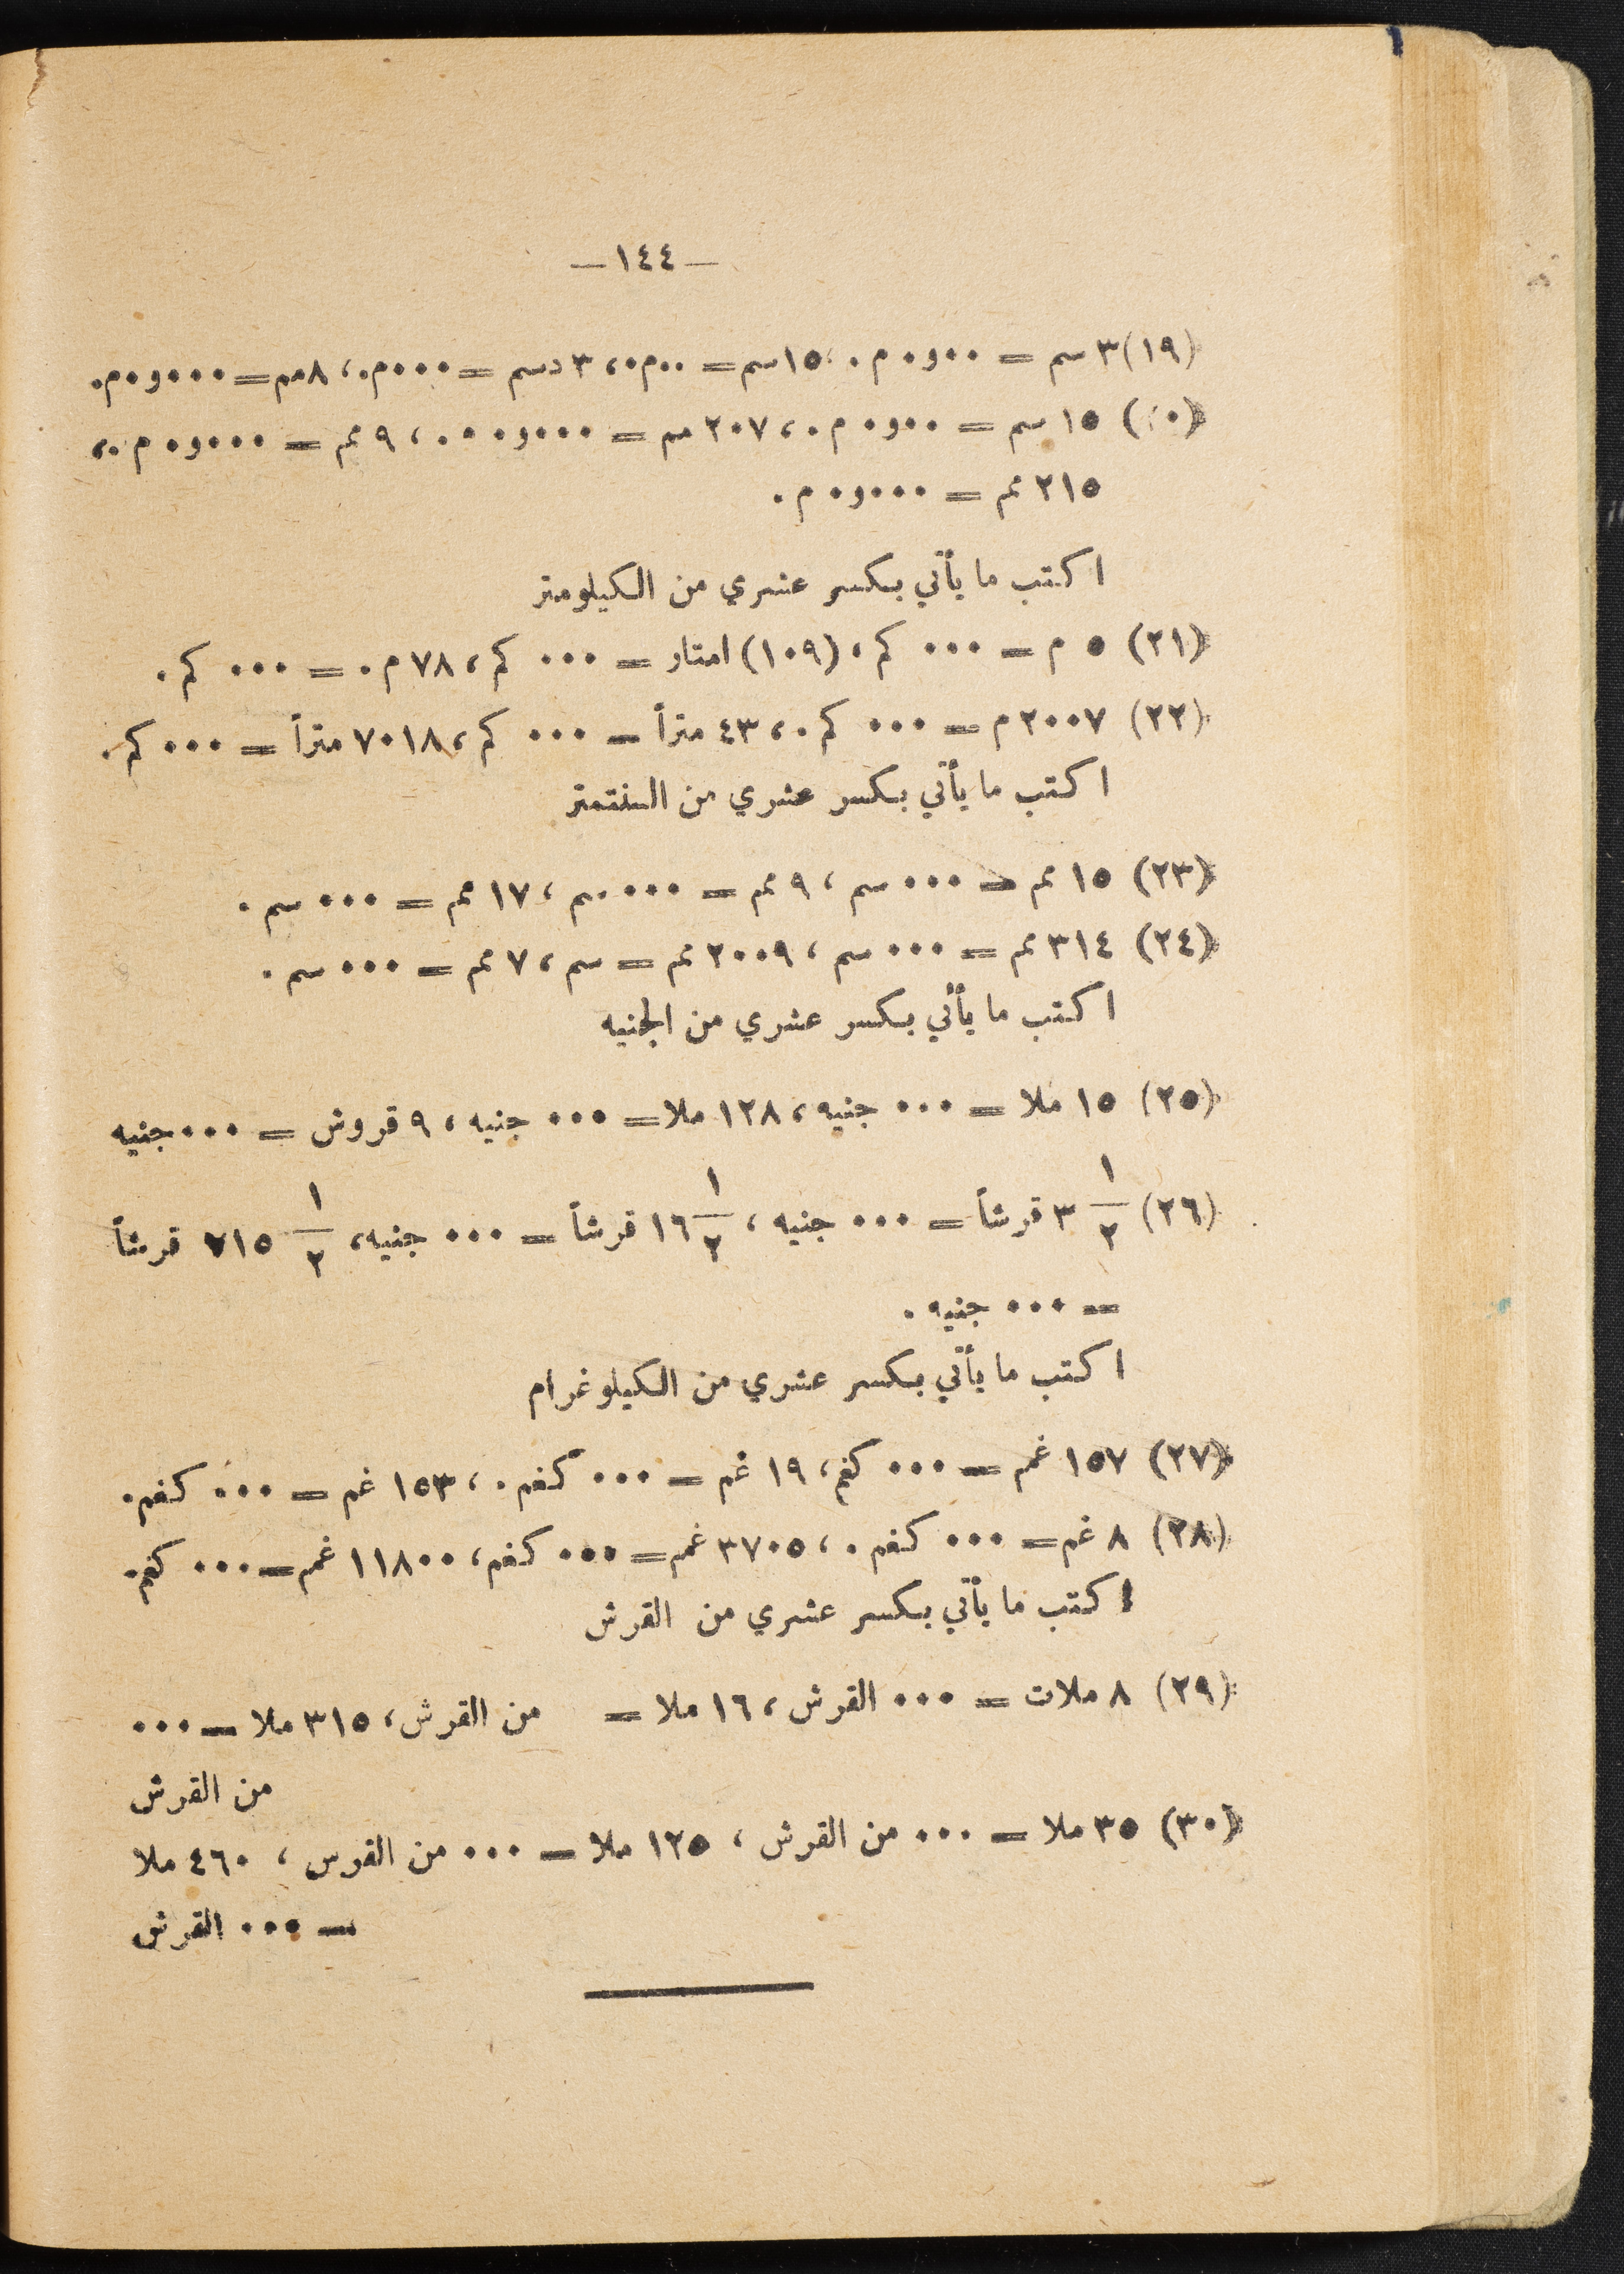 —١٤٤—
(١٩) ٣ سم = ٠٠و٠ م . ، ١٥ سم = ٠٠م٠ ، ٣ دسم = ٠٠٠م٠ ، ٨ مم = ٠٠٠و٠م٠
١٥ سم = ٠٠و٠ م . ، ٢٠٧ مم = ٠٠٠و٠ ٠ ٠ ، ٩ مم = ٠٠٠و٠ م ٠،
٢١٥ مم = ٠٠٠و٠ م .
اكتب ما يأتي بكسر عشري من الكيلومتر
(٢١) ٥ م = ٠٠٠ كم ، (١٠٩) امتار = ٠٠٠ كم ، ٧٨ م . = ٠٠٠ كم .
(٢٢) ٢٠٠٧ م = ٠٠٠ كم . ، ٤٣ متراً = ٠٠٠ كم ، ٧٠١٨ متراً = ٠٠٠ كم .
اكتب ما يأتي بكسر عشري من السنتمتر
(٢٣) ١٥ مم = ٠٠٠ سم ، ٩ مم = ٠٠٠ سم ، ١٧ مم = ٠٠٠ سم .
(٢٤) ٣١٤ مم = ٠٠٠ سم ، ٢٠٠٩ مم = سم ، ٧ مم = ٠٠٠ سم .
اكتب ما يأتي بكسر عشري من الجنيه
(٢٥) ١٥ ملا = ٠٠٠ جنيه ، ١٢٨ ملا = ٠٠٠ جنيه ، ٩ قروش = ٠٠٠ جنيه
(٢٦) ٣ ١/٢ قرشاً = ٠٠٠ جنيه ، ١٦ ١/٢ قرشاً = ٠٠٠ جنيه ، ٧١٥ ١/٢ قرشاً
= ٠٠٠ جنيه .
اكتب ما يأتي بكسر عشري من الكيلوغرام
(٢٧) ١٥٧ غم = ٠٠٠ كغم ، ١٩ غم = ٠٠٠ كغم . ، ١٥٣ غم = ٠٠٠ كغم .
(٢٨) ٨ غم = ٠٠٠ كغم . ، ٣٧٠٥ غم = ٠٠٠ كغم ، ١١٨٠٠ غم = ٠٠٠ كغم .
اكتب ما يأتي بكسر عشري من القرش
(٢٩) ٨ ملات = ٠٠٠ القرش ، ١٦ ملا = من القرش ، ٣١٥ ملا = ٠٠٠
من القرش
(٣٠) ٣٥ ملا = ٠٠٠ من القرش ، ١٢٥ ملا = ٠٠٠ من القرس ، ٤٦٠ ملا
= ٠٠٠ القرش